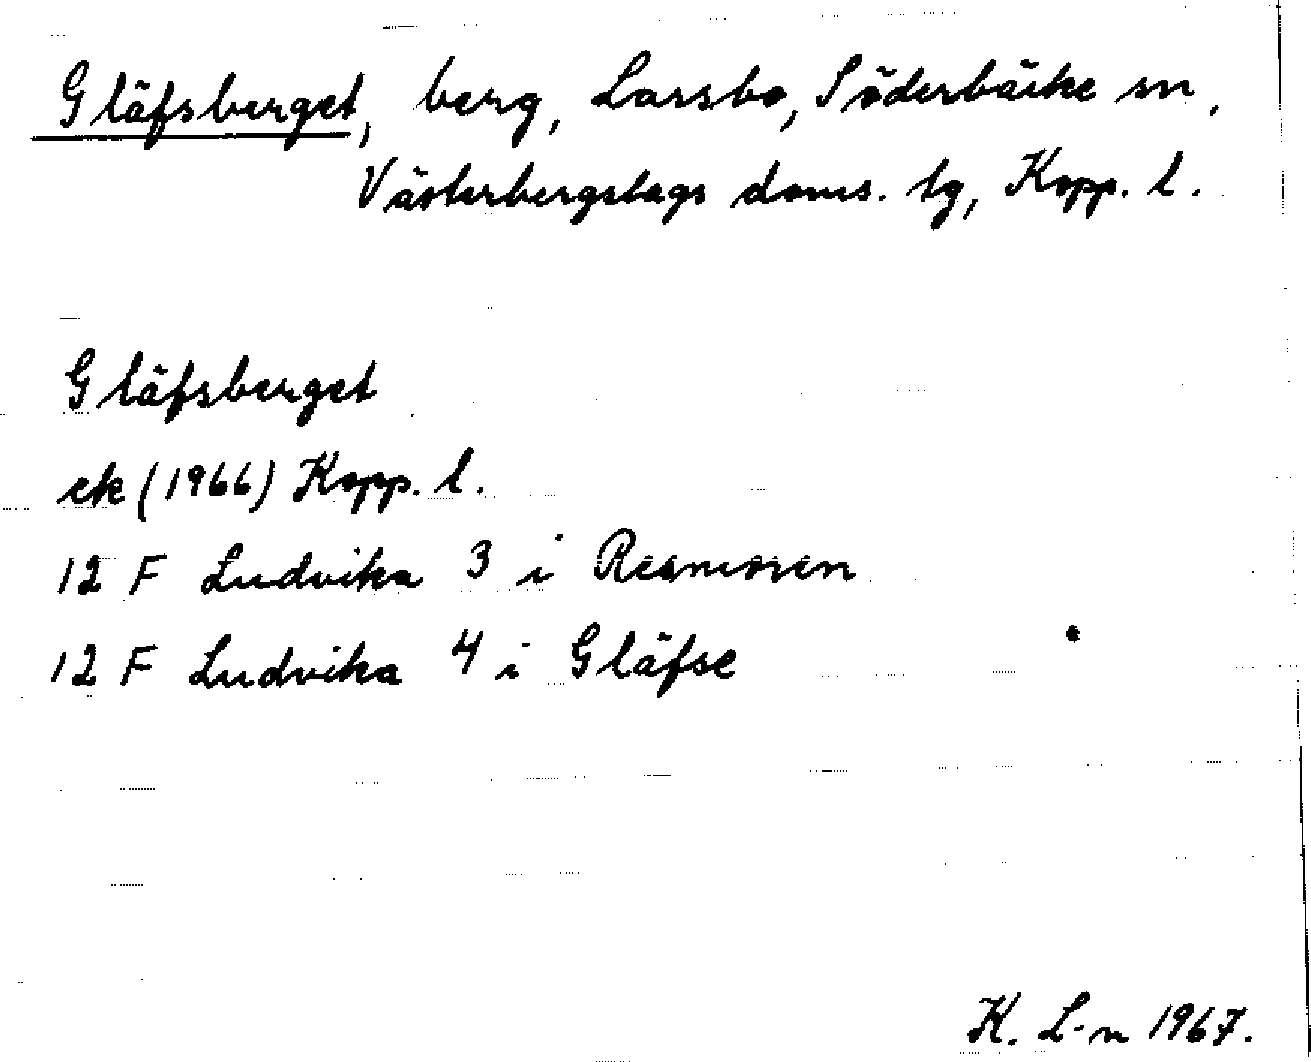 Gläfsberget, berg, Larsbo, Söderbärke sn,
Västerbergslags doms. tg, Kopp. l.
Gläfsberget
ek (1966) Kopp. l.
12 F Ludvika 3 i
12 F Ludvika 4 i Gläfse
K. L-n 1967.